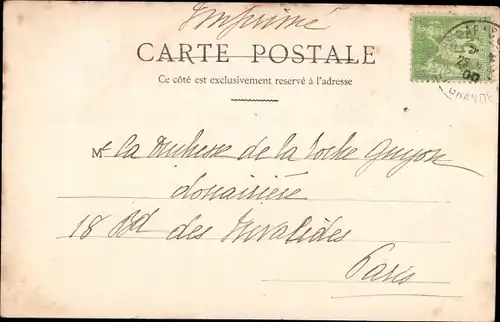 Imprimé
CARTE POSTALE
Ce côté est exclusivement reservé à l'adresse
Me la Duchesse de la Roche Guyon
douairière
18 Bd des Invalides
Paris